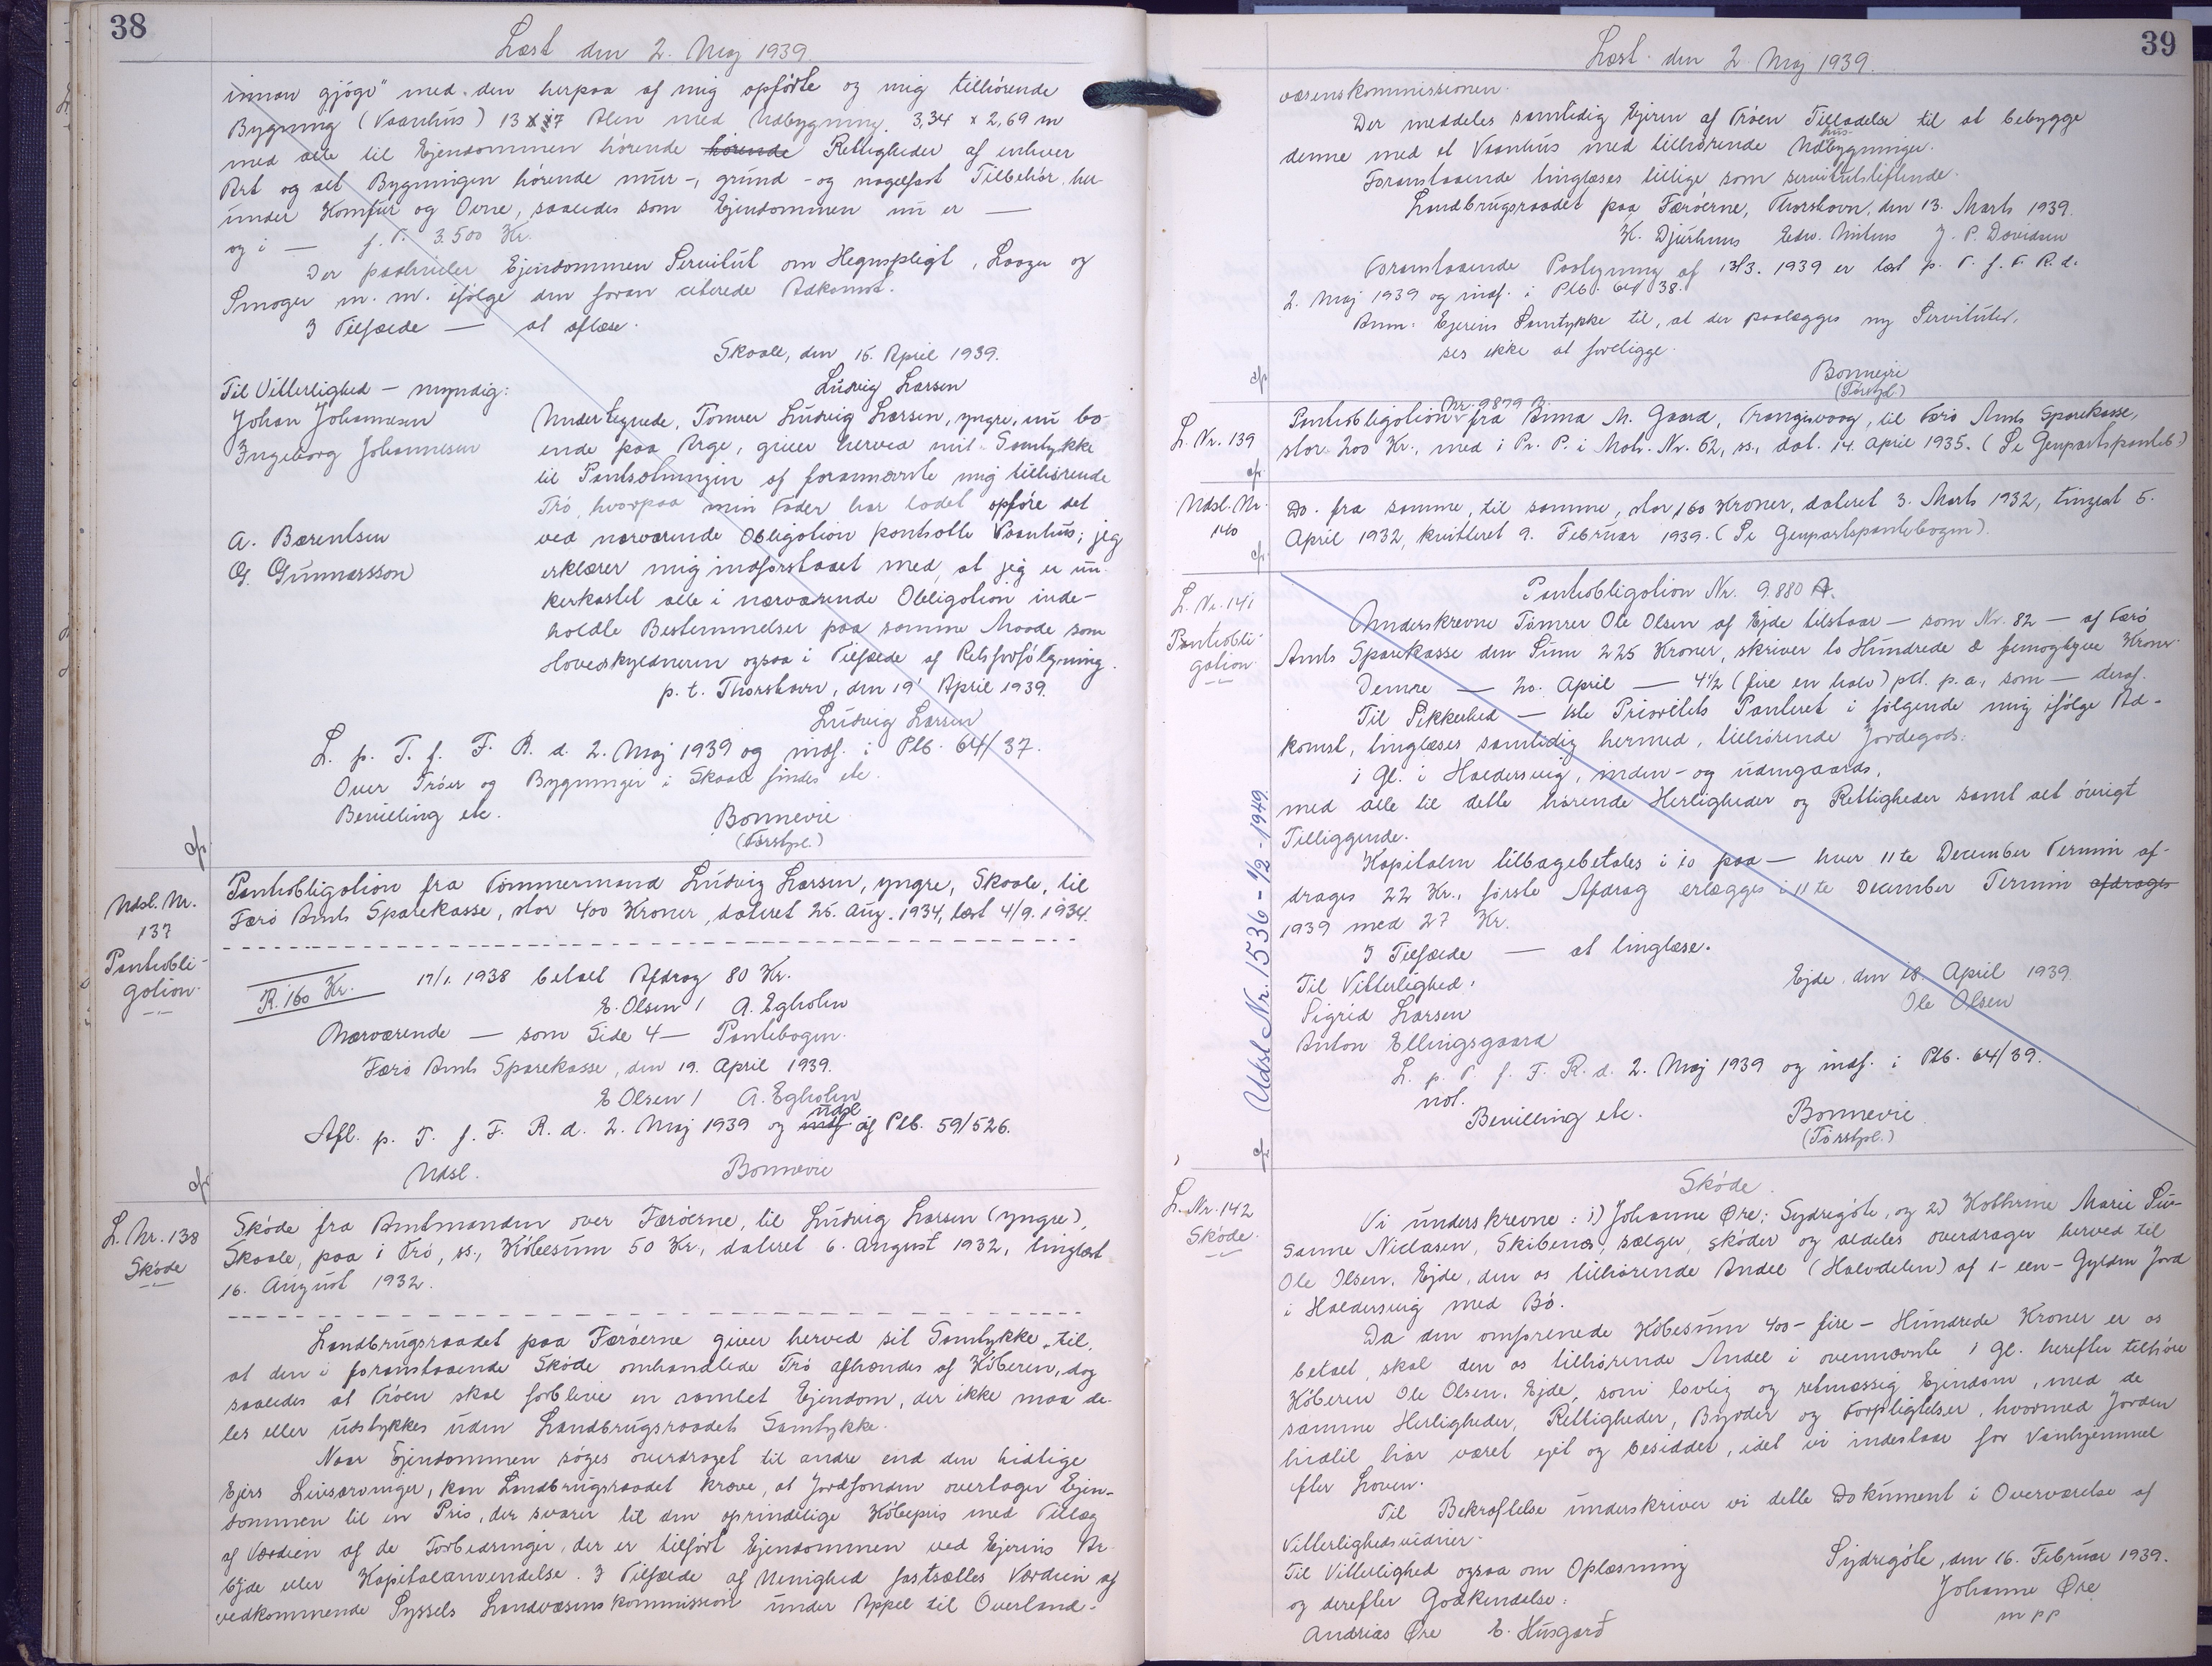 38
Læst den 2. Maj 1939.
innan gjógv" med den herpaa af mig opførte og mig tilhørende
Bygning (Vaanhus) 13 x 17 Alen med Udbygning 3,34 x 2,69 m
med alle til Ejendommen hørende hørende Rettigheder af enhver
Art og alt Bygningen hørende mur-, grund- og nagelfast Tilbehør her-
under Komfur og Ovne, saaledes som Ejendommen nu er —
og i — f. T. 3.500 Kr.
Der paahviler Ejendommen Servitut om Hegnspligt, Laager og
Smoger m. m. ifølge den foran citerede Adkomst.
I Tilfælde — at aflæse.
Skaale, den 15. April 1939.
Til Vitterlighed — myndig:
Ludvig Larsen
Johan Johannesen
Ingeborg Johannesen
Undertegnede, Tømrer Ludvig Larsen, yngre, nu bo-
ende paa Arge, giver herved mit Samtykke
til Pantsætningen af forannævnte mig tilhørende
Trø, hvorpaa min Fader har ladet opføre det
A. Bærentsen
ved nærværende Obligation pantsatte Vaanhus; jeg
G. Gunnarsson
erklærer mig indforstaaet med, at jeg er un-
kerkastet alle i nærværende Obligation inde-
holdte Bestemmelser paa samme Maade som
Hovedskyldneren ogsaa i Tilfælde af Retsforfølgning.
p. t. Thorshavn, den 19' April 1939.
Ludvig Larsen
L. p. T. f. F. R. d. 2. Maj 1939 og indf. i Ptb. 64/37.
Over Trøer og Bygninger i Skaale findes etc.
Bevilling etc.
Bonnevie
(Førstpl.)
Udsl. Nr.
137
Pantobli-
gation
Pantobligation fra Tømmermand Ludvig Larsen, yngre, Skaale, til
Færø Amts Sparekasse, stor 400 Kroner, dateret 25. Aug. 1934, læst 4/9. 1934.
R. 160 Kr.
17/1. 1938 betalt Afdrag 80 Kr.
E. Olsen / A. Egholm
Nærværende — som Side 4 — Pantebogen.
Færø Amts Sparekasse, den 19. April 1939.
E Olsen / A. Egholm
Afl. p. T. f. F. R. d. 2. Maj 1939 og indf udsl af Ptb. 59/526.
Udsl.
Bonnevie
L. Nr. 138
Skøde
Skøde fra Amtmanden over Færøerne, til Ludvig Larsen (yngre),
Skaale, paa i Trø, ss., Købesum 50 Kr., dateret 6. August 1932, tinglæst
16. August 1932.
Landbrugsraadet paa Færøerne giver herved sit Samtykke til,
at den i foranstaaende Skøde omhandlede Trø afhændes af Køberen, dog
saaledes at Trøen skal forblive en samlet Ejendom, der ikke maa de-
les eller udstykkes uden Landbrugsraadets Samtykke.
Naar Ejendommen søges overdraget til andre end den hidtige
Ejers Livsarvinger, kan Landbrugsraadet kræve, at Jordfonden overtager Ejen-
dommen til en Pris, der svarer til den oprindelige Købepris med Tillæg
af Værdien af de Forbedringer, der er tilført Ejendommen ved Ejerens Ar-
bejde eller Kapitalanvendelse. I Tilfælde af Uenighed fastsættes Værdien af
vedkommende Syssels Landvæsenskommission under Appel til Overland-
39
Læst den 2 Maj 1939.
væsenskommissionen.
Der meddeles samtidig Ejeren af Trøen Tilladelse til at bebygge
denne med et Vaanhus med tilhørende Udhusbygninger.
Foranstaaende tinglæses tillige som servitutstiftende.
Landbrugsraadet paa Færøerne, Thorshavn, den 13. Marts 1939.
K. Djurhuus Edw. Mitens J. P. Davidsen
Foranstaaende Paategning af 13/3. 1939 er læst p. T. f. F. R. d.
2. Maj 1939 og indf. i Ptb. 64/38.
Anm: Ejerens Samtykke til, at der paalægges ny Servitutter,
ses ikke at foreligge.
Bonnevie
(Førstpl.)
L. Nr. 139
Pantobligation Nr. 9879 A. fra Anna M. Gaard, Trangisvaag, til Færø Amts Sparekasse,
stor 200 Kr., med i Pr. P. i Matr. Nr. 62, ss., dat. 14. April 1935. (Se Genpartspanteb.)
Udsl. Nr.
140
Do. fra samme, til samme, stor 160 Kroner, dateret 3. Marts 1932, tinglæst 5.
April 1932, kvitteret 9. Februar 1939. (Se Genpartspantebogen).
L. Nr. 141
Pantobli-
gation
Pantobligation Nr. 9.880 A.
Underskrevne Tømrer Ole Olsen af Ejde tilstaar — som Nr. 82 — af Færø
Amts Sparekasse den Sum 225 Kroner, skriver to Hundrede & femogtyve Kroner
Denne — 20. April — 4½ (fire en halv) pCt. p. a., som — deraf.
Til Sikkerhed — 1ste Prioritets Panteret i følgende mig ifølge Ad-
komst, tinglæses samtidig hermed, tilhørende Jordegods:
1 Gl. i Haldersvig, inden- og udengaards,
med alle til dette hørende Herligheder og Rettigheder samt alt øvrigt
Tilliggende.
Kapitalen tilbagebetales i 10 paa — hver 11te December Termin af-
drages 22 Kr., første Afdrag erlægges i 11te December Termin afdrages
1939 med 27 Kr.
I Tilfælde — at tinglæse.
Til Vitterlighed:
Ejde, den 18. April 1939.
Sigrid Larsen
Ole Olsen
Anton Ellingsgaard
L. p. T. f. F. R. d. 2. Maj 1939 og indf. i Ptb. 64/39.
not.
Bevilling etc.
Bonnevie
(Førstpl.)
Udsl Nr. 1536 - 1/2 - 1949.
L. Nr. 142
Skøde.
Skøde.
Vi underskrevne: 1) Johanne Øre, Sydregøte, og 2) Kathrine Marie Su-
sanne Niclasen, Skibenæs, sælger, skøder og aldeles overdrager herved til
Ole Olsen, Ejde, den os tilhørende Andel (Halvdelen) af 1- een- Gylden Jord
i Haldersvig med Bø.
Da den omforenede Købesum 400 - fire - Hundrede Kroner er os
betalt, skal den os tilhørende Andel i ovennævnte 1 Gl. herefter tilhøre
Køberen Ole Olsen, Ejde, som lovlig og retmæssig Ejendom, med de
samme Herligheder, Rettigheder, Byrder og Forpligtelser, hvormed Jorden
hidtil har været ejet og besiddet, idet vi indestaar for Vanhjemmel
efter Loven.
Til Bekræftelse underskriver vi dette Dokument i Overværelse af
Vitterlighedsvidner.
Til Vitterlighed ogsaa om Oplæsning
og derefter Godkendelse:
Sydregøte, den 16. Februar 1939.
Johanne Øre
m p p
Andrias Øre E. Húsgarð